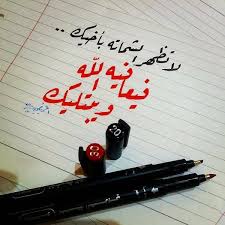 لا تظهر الشماتة بأخيك ..
فيعافيه الله
ويبتليك
20.
30